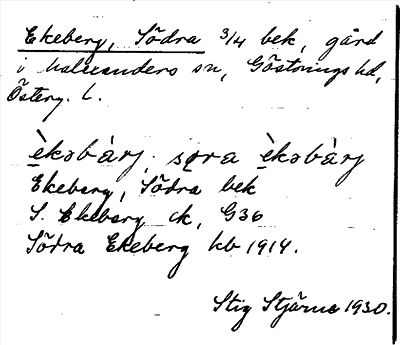 Ekeberg, Södra 3/4 bek, gård
i Malexanders sn, Göstrings hd,
Österg. l.
èkəbàrj, søra èkəbàrj
Ekeberg, Södra bek
S. Ekeberg ck, G36
Södra Ekeberg kb 1914.
Stig Stjärne 1930.